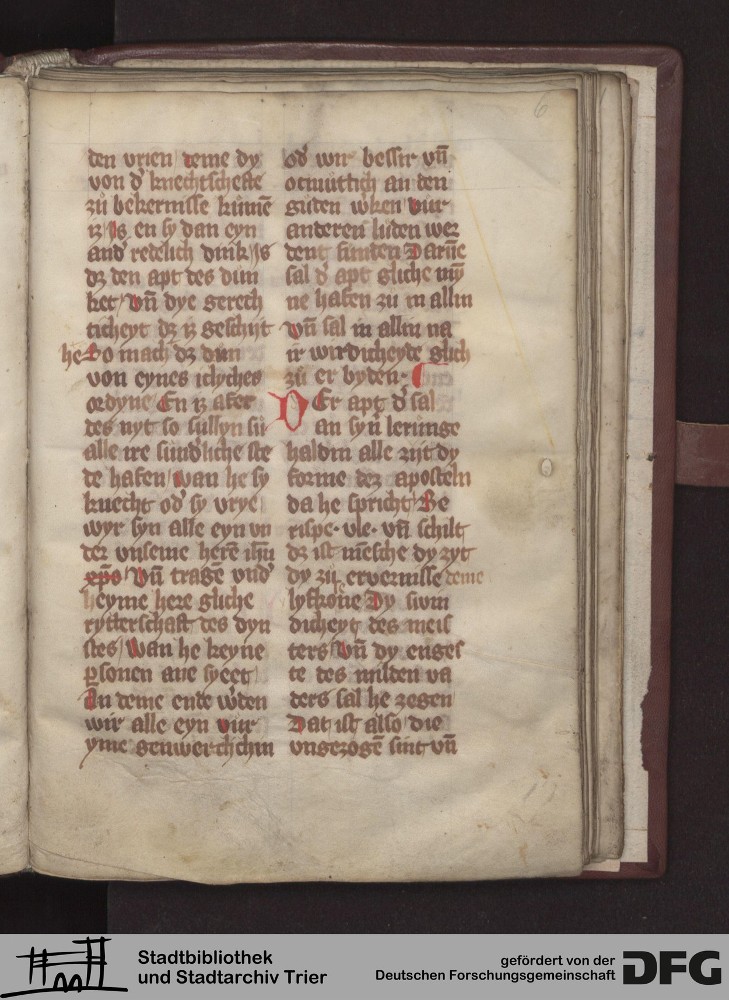 6
den vrien deme dy
von d' knechtscheite
zů bekernisse kůmē
iz Is en sy dan eyn
and' redelich dink Is
dz den apt des dun
ket vn̄ dye gerech
ticheyt dz iz geschiit
he So mach dz dun
von eynes iclyches
ordyne En iz aber
des nyt so sullyn sii
alle ire sund'liche ste
de haben wan he sy
knecht od' sy vrye
wyr syn alle eyn vn
der vnseme herē ihu
xp̄o Vn̄ tragē vnd'
heyme here gliche
rytterschaft des dyn
stes Wan he keyne
psonen ane syeet
An deme ende w'den
wir alle eyn vur
yme genwerdichin
od' wir bessir vn̄
otmuttich an den
guden w'ken vur
anderen luden wer
dent funden Darūe
sal d' apt gliche mȳ
ne haben zu in allin
Vn̄ sal in allin na
ir wirdicheyde glich
zů er byden.
Der apt d' sal
an syn̄ lerunge
haldin alle zijt dy
forme dez aposteln
da he spricht Be
rispe. vle. vn̄ schilt
dz ist mēsche dy zyt
dy zů ervernisse deme
lyfkōne Dy siwin
dicheyt des meis
ters Vn̄ dy enges
te des milden va
ders sal he zegen
Dat ist also die
vngezogē sint vn̄
Stadtbibliothek
und Stadtarchiv Trier
gefördert von der
Deutschen Forschungsgemeinschaft
DFG